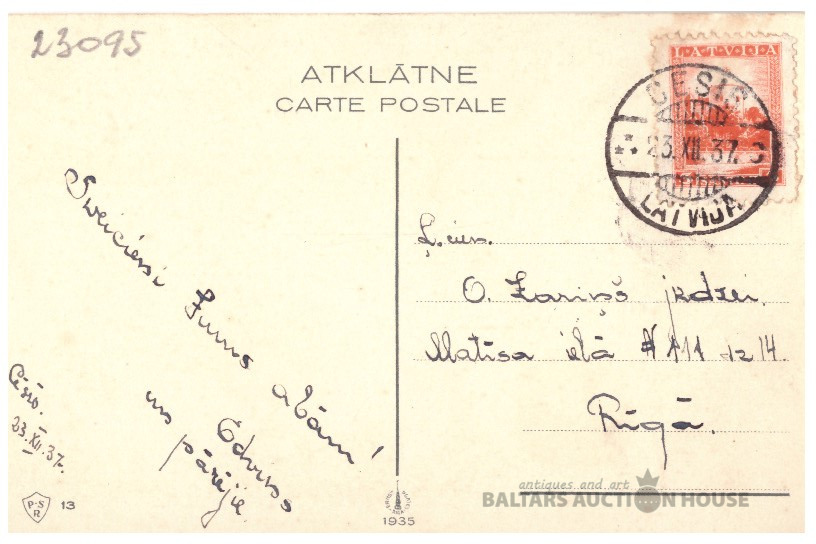 23095
ATKLĀTNE
CARTE POSTALE
LATVIJA
CESIS
23.XII.37. C
LATVIJA
Sveicieni Jums abām!
Edvīns
un pārējie
Cēsīs.
23.XII.37.
Ļ. cien.
O. Zariņš jkdzei.
Matīsa ielā #111 dz 14.
Rīgā.
P-S
R
13
1935
antiques and art
BALTARS AUCTION HOUSE